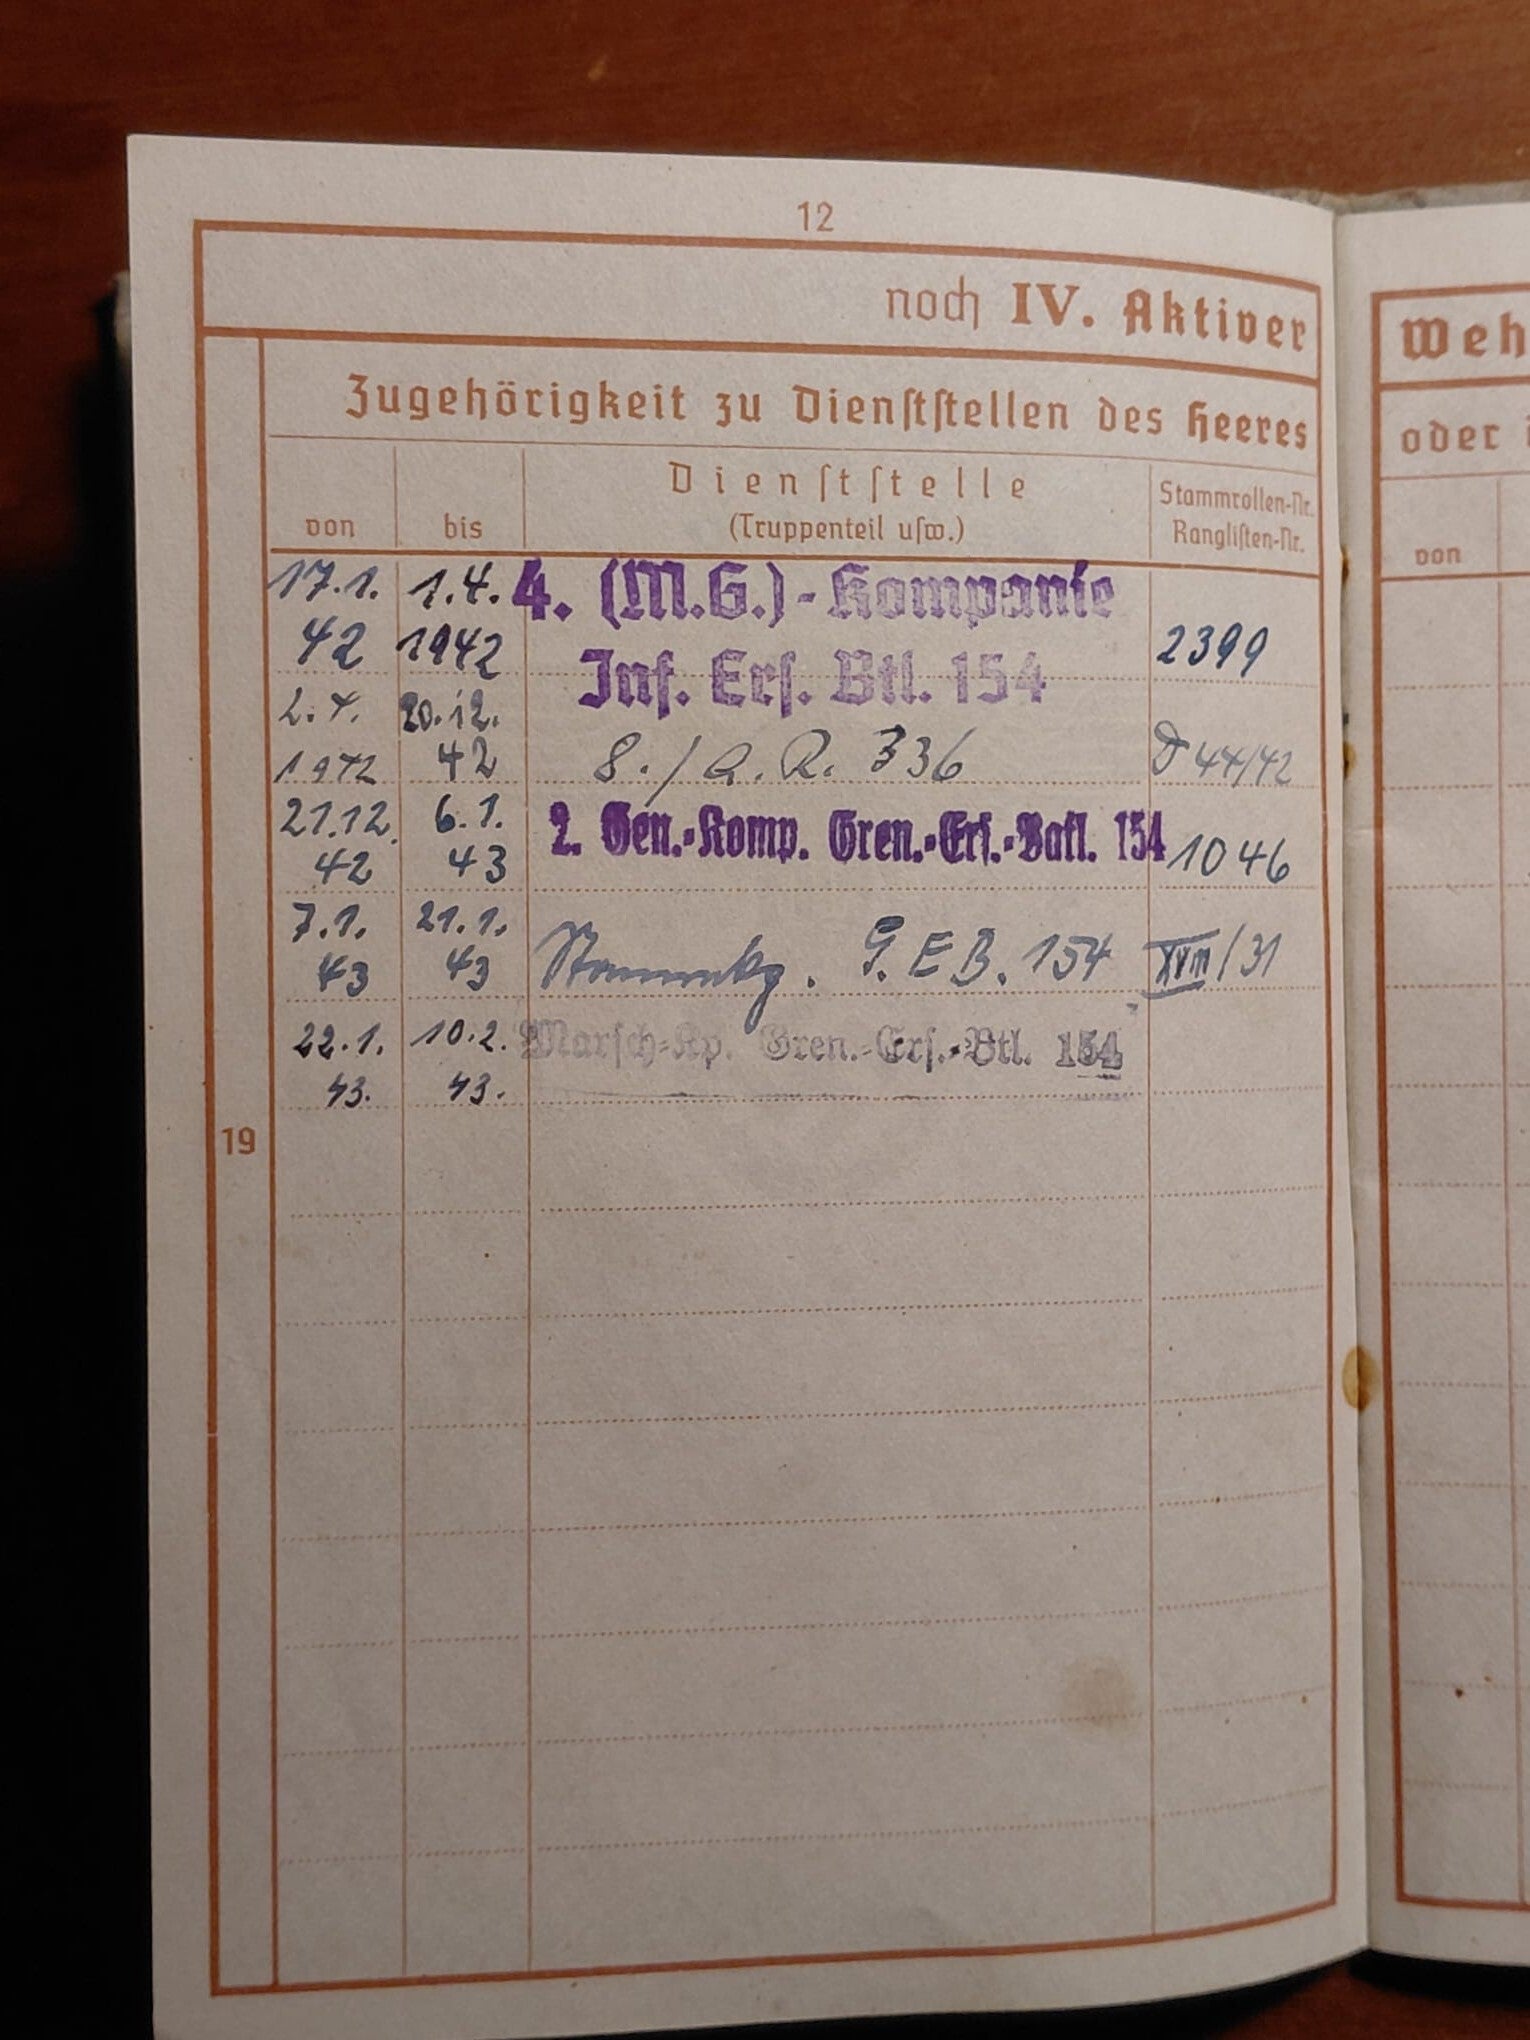 12
noch IV. Aktiver
Zugehörigkeit zu Dienſtſtellen des Heeres
von
bis
Dienſtſtelle
(Truppenteil uſw.)
Stammrollen-Nr.
Rangliſten-Nr.
17.1. 1.4. 4. (M.G.)-Kompanie
42 1942 Inf. Erſ. Btl. 154 2399
2.4. 20.12.
1942 42 8./A.R. 336 D 44/42
21.12. 6.1. 2. Gen.-Komp. Gren.-Erſ.-Batl. 154
42 43 1046
7.1. 21.1.
43 43 Stammkp. G.E.B. 154 XVIII/31
22.1. 10.2. Marſch-Kp. Gren.-Erſ.-Btl. 154
43. 43.
19
Weh
oder
von